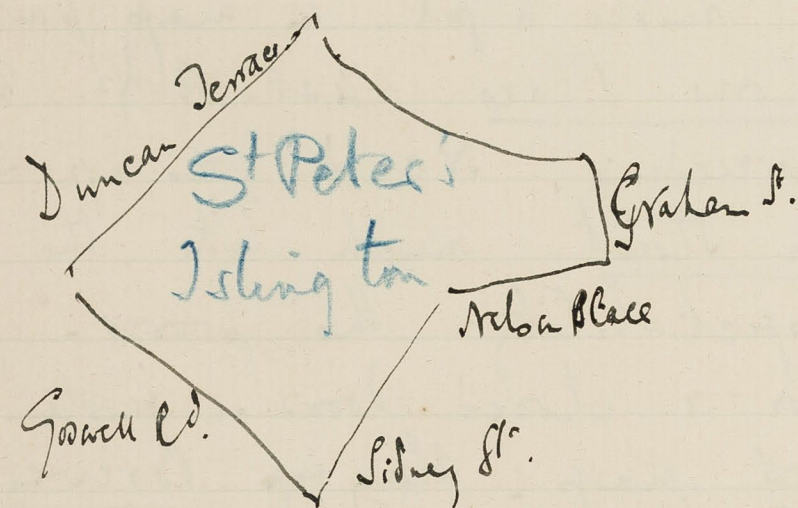 Duncan Terrace
St Peter's
Islington
Graham St.
Nelson Place
Goswell Rd.
Sidney St.